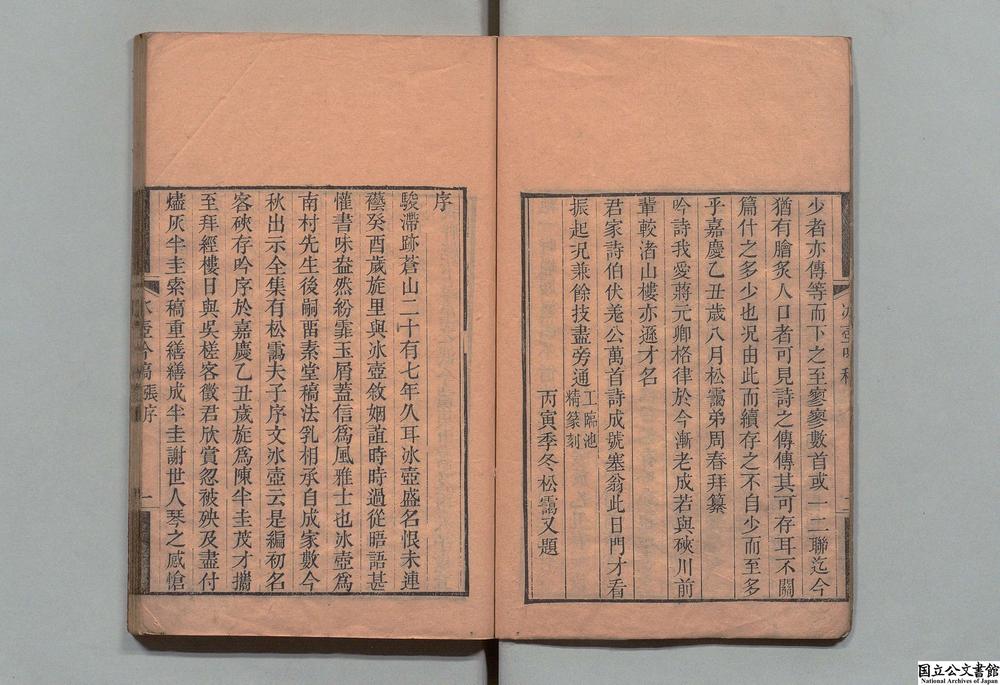 少者亦傳等而下之至寥寥數首或一二聯迄今
猶有膾炙人口者可見詩之傳傳其可存耳不關
篇什之多少也況由此而續存之不自少而至多
乎嘉慶乙丑歲八月松靄弟周春拜纂
吟詩我愛蔣元卿格律於今漸老成若與硤川前
輩較渚山樓亦遜才名
君家詩伯伏羌公萬首詩成號塞翁此日門才看
振起況兼餘技盡旁通工臨池精篆刻
丙寅季冬松靄又題
冰壺吟稿張序
一
序
駿滯跡蒼山二十有七年久耳冰壺盛名恨未連
襼癸酉歲旋里與冰壺敘姻誼時時過從晤語甚
懽書味盎然紛霏玉屑蓋信爲風雅士也冰壺爲
南村先生後嗣畱素堂稿法乳相承自成家數今
秋出示全集有松靄夫子序文冰壺云是編初名
客硤存吟序於嘉慶乙丑歲旋爲陳半圭茂才攜
至拜經樓日與吳槎客徵君欣賞忽被殃及盡付
燼灰半圭索稿重繕繕成半圭謝世人琴之感愴
国立公文書館
National Archives of Japan